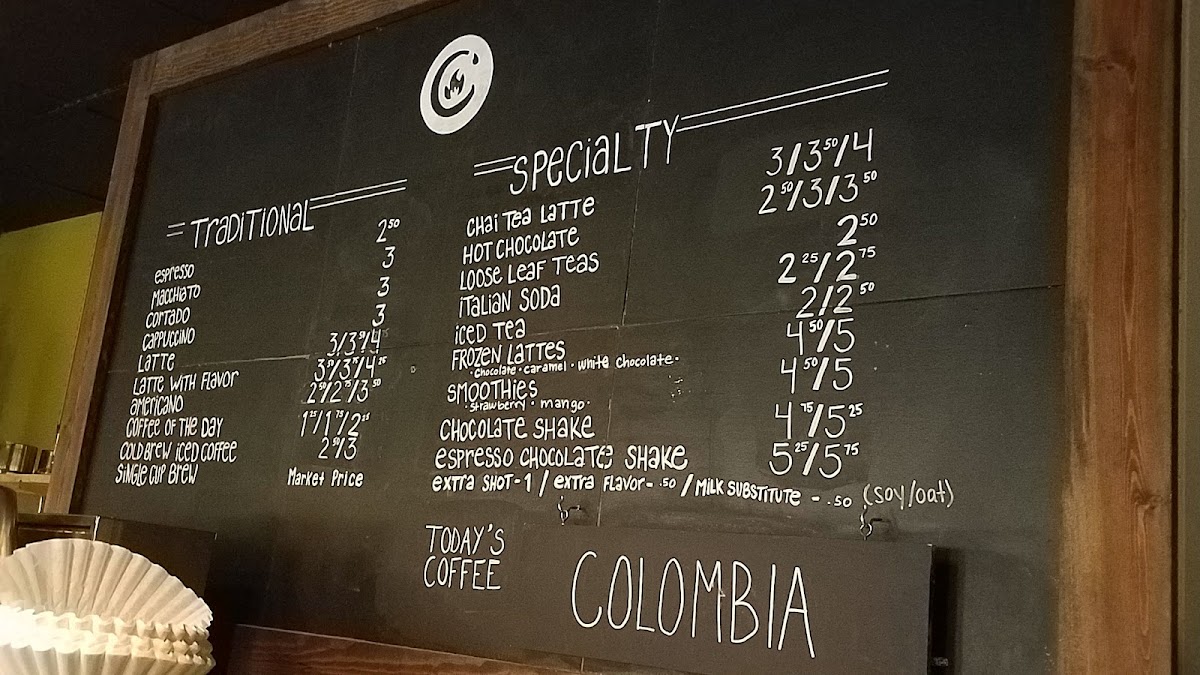 TRADITIONAL
espresso 2⁵⁰
MACCHIATO 3
CORTADO 3
CAPPUCCINO 3
LATTE 3/3⁵⁰/4
LATTE WITH FLAVOR 3⁵⁰/3⁷⁵/4²⁵
AMERICANO 2⁵⁰/2⁷⁵/3⁵⁰
COFFEE OF THE DAY 1²⁵/1⁷⁵/2²⁵
COLD BREW ICED COFFEE 2⁵⁰/3
SINGLE CUP BREW Market Price
SPECIALTY
CHAI TEA LATTE 3/3⁵⁰/4
HOT CHOCOLATE 2⁵⁰/3/3⁵⁰
LOOSE LEAF TEAS 2⁵⁰
ITALIAN SODA 2²⁵/2⁷⁵
ICED TEA 2/2⁵⁰
FROZEN LATTES 4⁵⁰/5
· chocolate · caramel · white chocolate ·
SMOOTHIES 4⁵⁰/5
· strawberry · mango ·
CHOCOLATE SHAKE 4⁷⁵/5²⁵
ESPRESSO CHOCOLATE SHAKE 5²⁵/5⁷⁵
EXTRA SHOT - 1 / EXTRA FLAVOR - .50 / MILK SUBSTITUTE - .50 (soy/oat)
TODAY'S
COFFEE
COLOMBIA